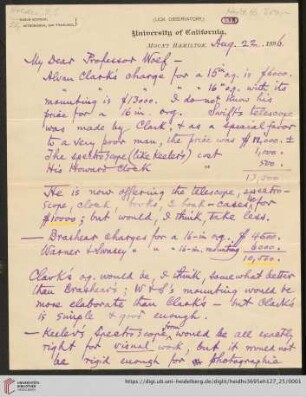 (LICK OBSERVATORY)
University of California.
MOUNT HAMILTON, Aug. 22, 1896
My Dear Professor Wolf —
Alvan Clark's charge for a 15 in o.g. is $6000.
" " " " 16 in o.g. with its
mounting is $13000. I do not know his
price for a 16 in. o.g. Swift's telescope
was made by Clark, & as a special favor
to a very poor man, the price was $12,000. ±
The spectroscope (like Keeler's) cost 1,000.
His Howard clock " 500.
13,500
He is now offering the telescope, spectro-
scope, clock, books, 2 book-cases, for
$10000; but would, I think, take less.
— Brashear charges for a 16-in o.g. $ 4500.
Warner & Swasey " " " 16-in. mounting 6000.
10,500.
Clark's o.g. would be, I think, somewhat better
than Brashear's; W & S's mounting would be
more elaborate than Clark's — but Clark's
is simple & good enough.
— Keeler's form Spectroscope, would be all exactly
right for visual work, but it would not
be rigid enough for photographic
https://digi.ub.uni-heidelberg.de/diglit/heidhs3695eh127_25/0001